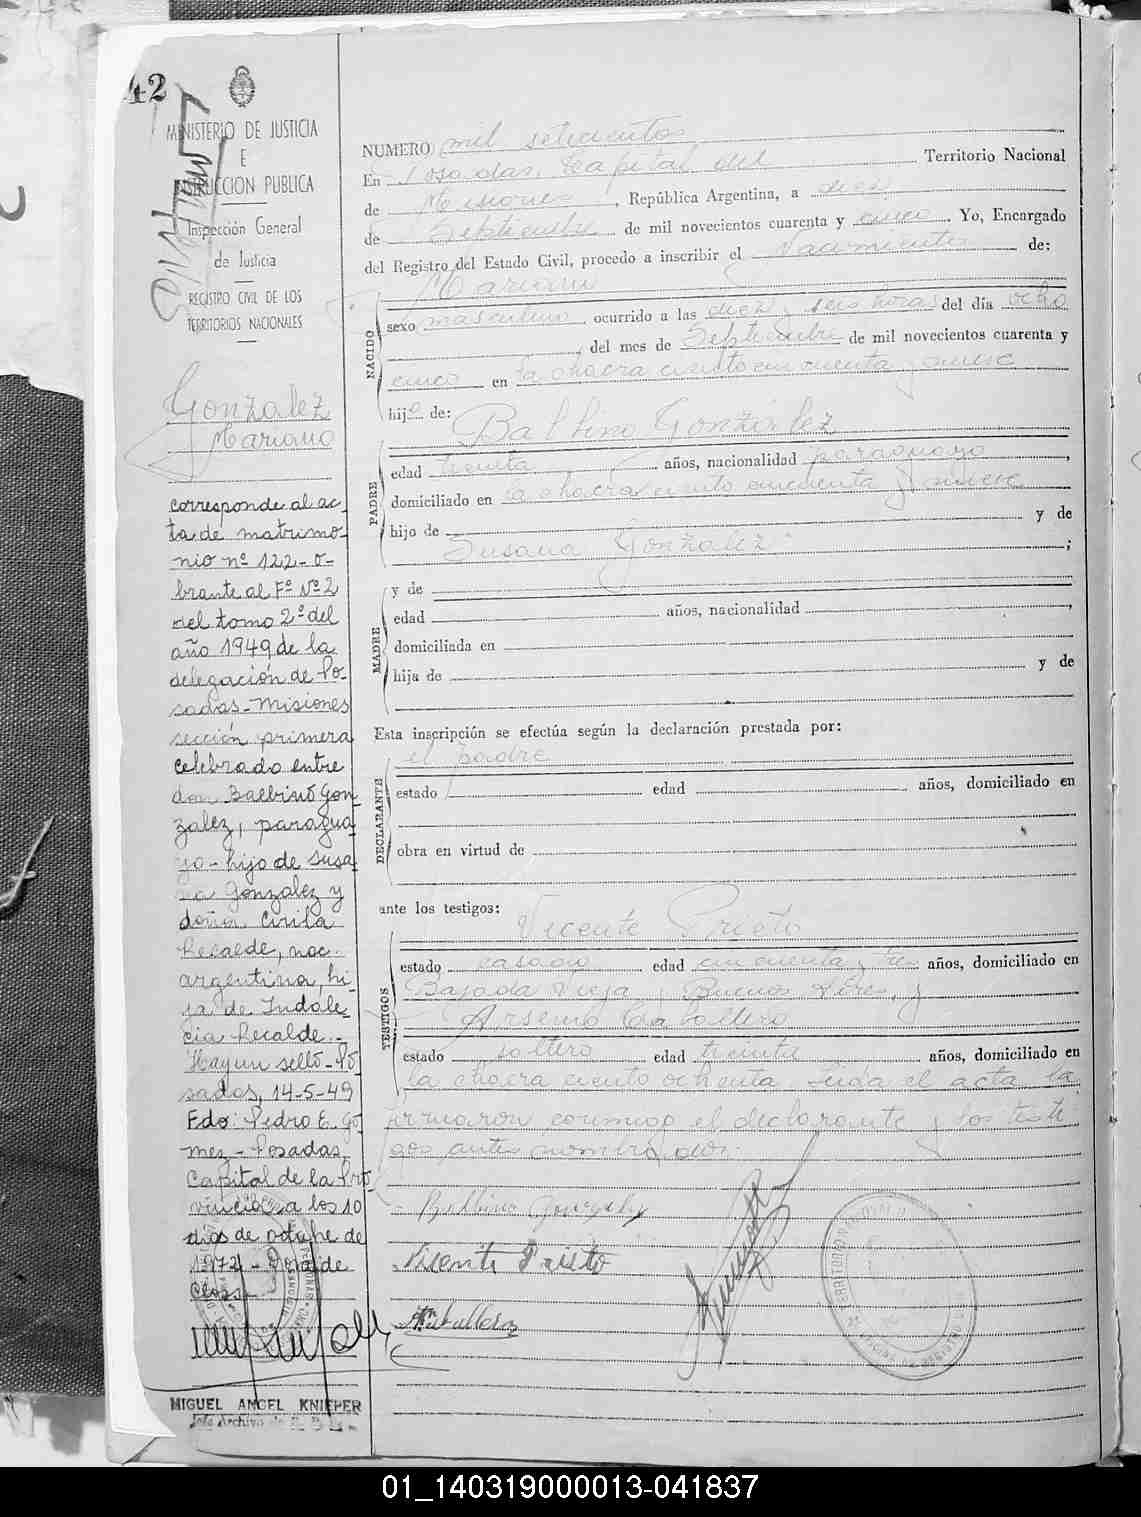 42
MINISTERIO DE JUSTICIA
E
INSTRUCCION PUBLICA
Inspección General
de Justicia
REGISTRO CIVIL DE LOS
TERRITORIOS NACIONALES
Gonzalez
Mariano
corresponde al ac-
ta de matrimo-
nio nº 122-o-
brante al Fº Nº 2
del tomo 2º del
año 1949 de la
delegación de Po-
sadas-Misiones
sección primera
celebrado entre
don Balbino Gon-
zalez, paragua
yo-hijo de Susa
na Gonzalez y
doña Cirila
Recalde, nac.
argentina, hi-
ja de Indale-
cia Recalde.-
Hay un sello-Po
sadas, 14-5-49
Fdo: Pedro E. Gó
mez-Posadas,
Capital de la Pro
vincia a los 10
días de octubre de
1972-
MIGUEL ANGEL KNIEPER
Jefe Archivo de
NUMERO mil setecientos
En Posadas, Capital del Territorio Nacional
de Misiones, República Argentina, a diez
de Septiembre de mil novecientos cuarenta y cinco. Yo, Encargado
del Registro del Estado Civil, procedo a inscribir el Nacimiento de:
Mariano
NACIDO
sexo masculino ocurrido a las diez y seis horas del día ocho
, del mes de Septiembre de mil novecientos cuarenta y
cinco en la chacra ciento cincuenta y nueve
hijo de:
Balbino González
PADRE
edad treinta años, nacionalidad paraguayo,
domiciliado en la chacra ciento cincuenta y nueve
hijo de y de
Susana González ;
MADRE
y de
edad años, nacionalidad ,
domiciliada en
hija de y de
Esta inscripción se efectúa según la declaración prestada por:
el padre
DECLARANTE
estado edad años, domiciliado en
obra en virtud de
ante los testigos:
Vicente Prieto
TESTIGOS
estado casado edad cincuenta y tres años, domiciliado en
Bajada Vieja y Buenos Aires, y
Arsenio Caballero
estado soltero edad treinta años, domiciliado en
la chacra ciento ochenta. Leida el acta la
firmaron conmigo el declarante y los testi
gos antes nombrados.
Balbino Gonzalez
Vicente Prieto
Caballero
01_140319000013-041837